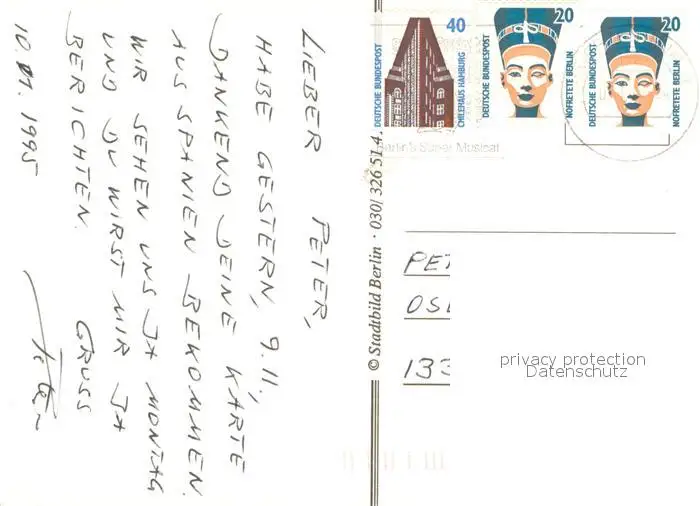 LIEBER PETER,
HABE GESTERN, 9.11,
DANKEND DEINE KARTE
AUS SPANIEN BEKOMMEN.
WIR SEHEN UNS JA MONTAG
UND DU WIRST MIR JA
BERICHTEN. GRUSS
1995
© Stadtbild Berlin · 030/ 326 51 4
DEUTSCHE BUNDESPOST
40
CHILEHAUS HAMBURG
DEUTSCHE BUNDESPOST
20
NOFRETETE BERLIN
DEUTSCHE BUNDESPOST
20
NOFRETETE BERLIN
Berlin's Super Musical
PET
OSL
133
privacy protection
Datenschutz